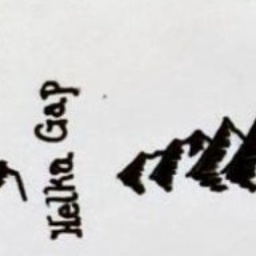 Helka Gap